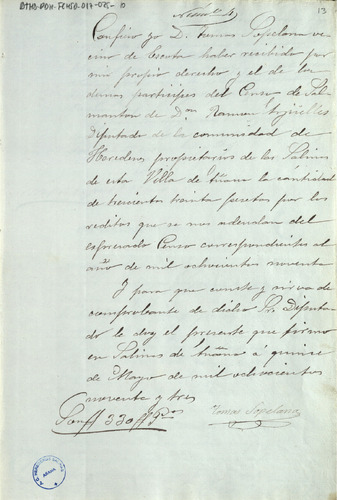 ATHA-DAH-FCHSD-017-025-10
Número 4
13
Confieso yo D. Tomas Sopelana ve
cino de Escota haber recibido por
mi propio derecho y el de los
demas participes del Censo de Sal
manton de Dn. Ramon
Diputado de la comunidad de
Herederos propietarios de las Salinas
de esta Villa de la cantidad
de trescientas treinta pesetas por los
reditos que se nos adeudan del
espresado Censo correspondientes al
año de mil ochocientos noventa
Y para que conste y sirva de
comprobante de dicho Sr. Diputa
do le doy el presente que firmo
en Salinas de Añana á quince
de Mayo de mil ochocientos
noventa y tres
Son // 330 // Ptas
Tomas Sopelana